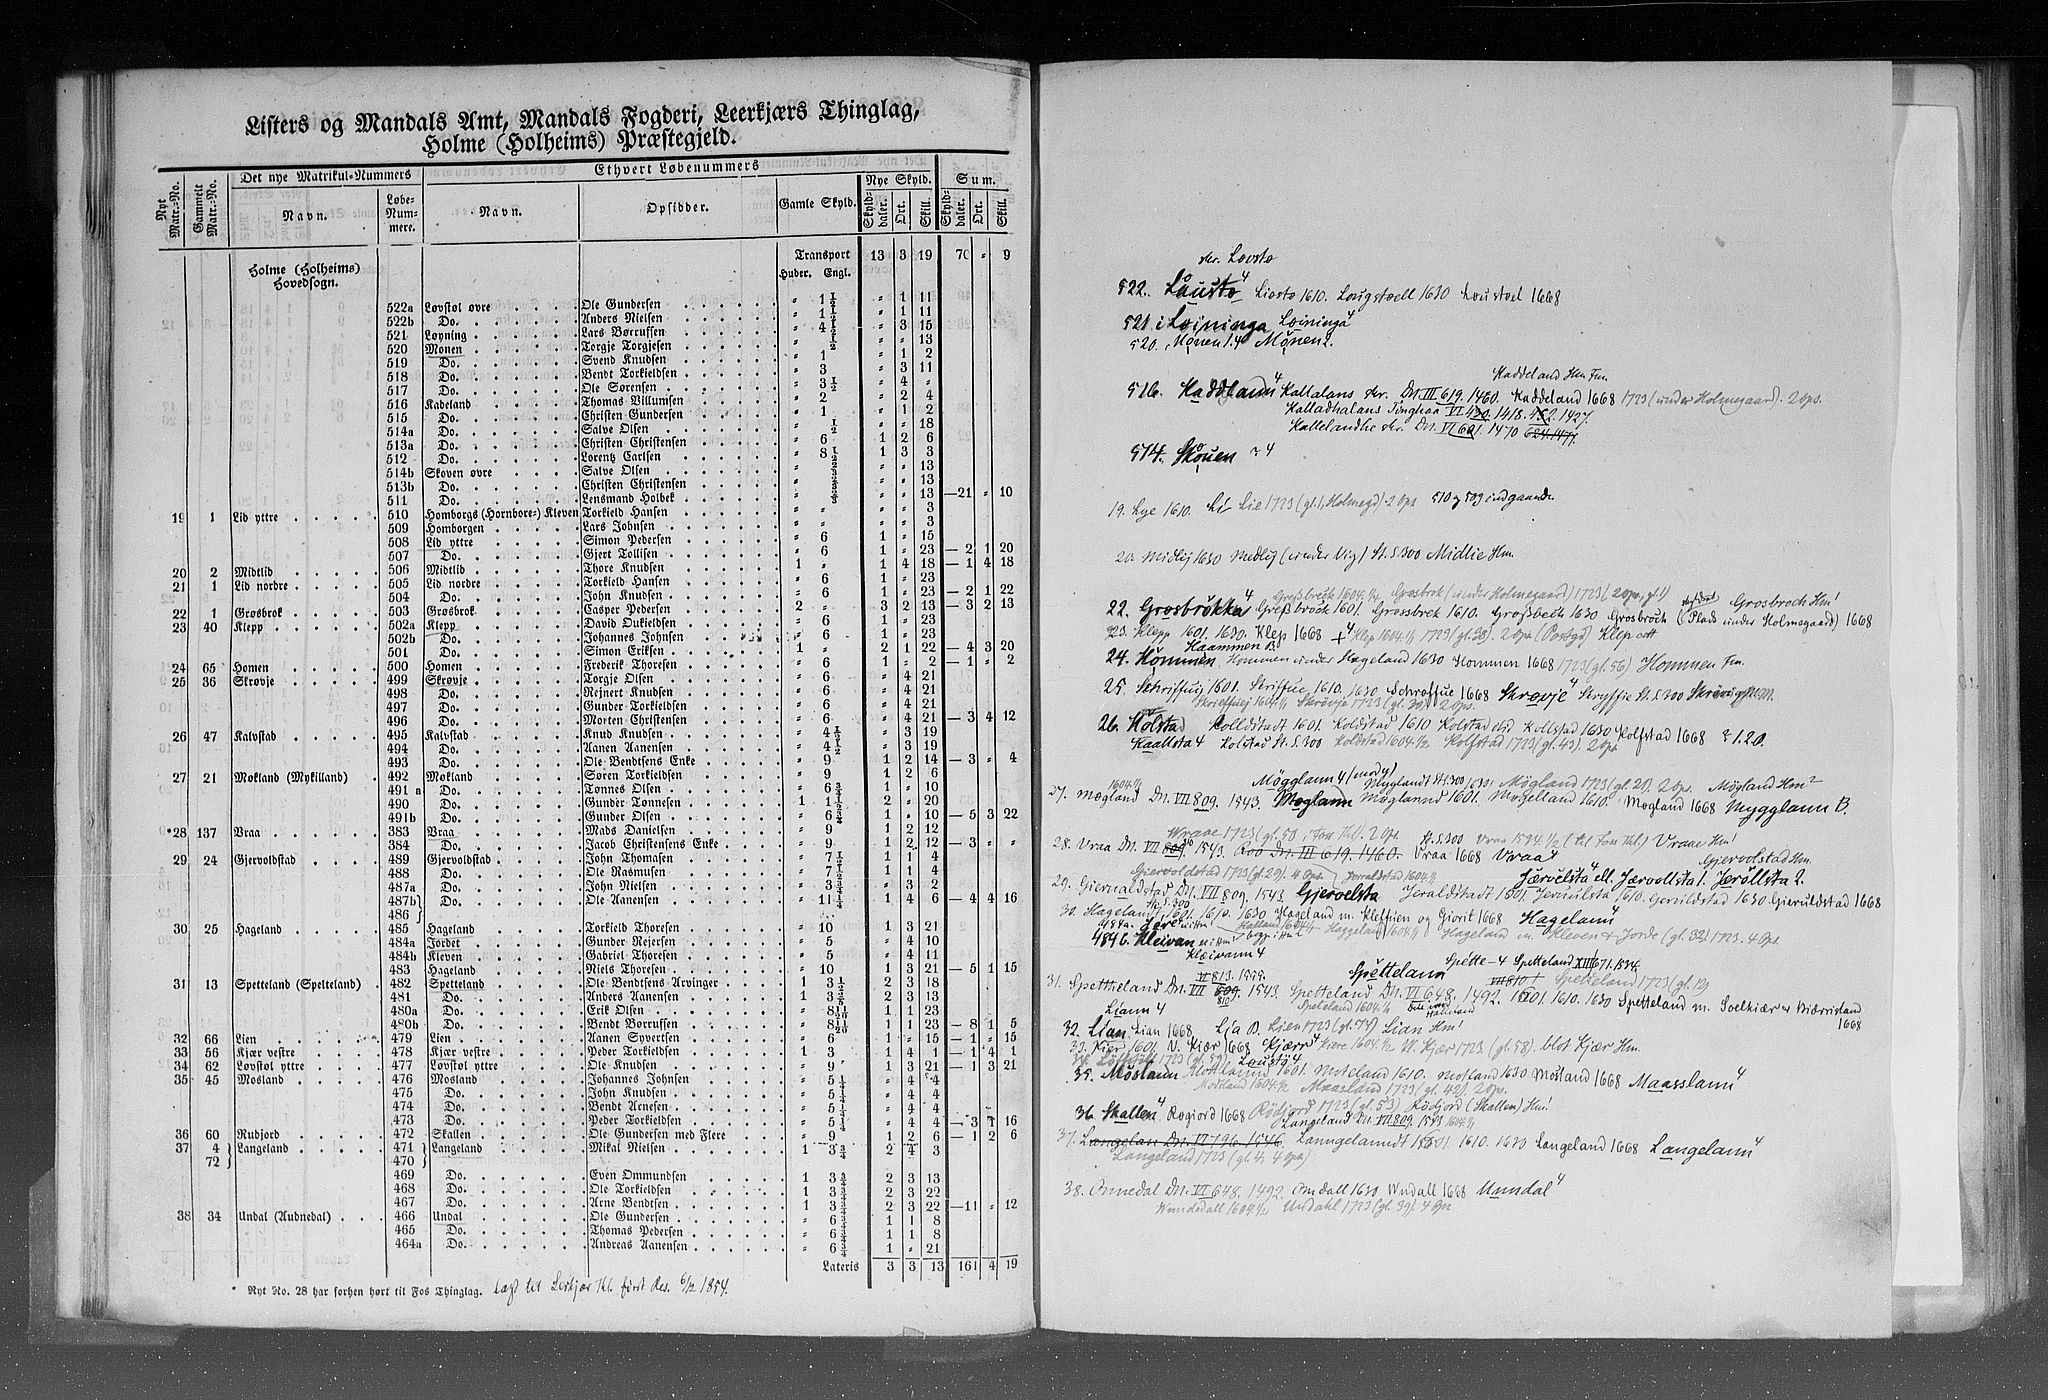 Listers og Mandals Amt, Mandals Fogderi, Leerkjærs Thinglag,
Holme (Holheims) Præstegjeld.
Nyt Matr.-No. Gammelt Matr.-No. Det nye Matrikul-Nummers Ethvert Løbenummers
Navn. Løbe-Num-mere. Navn. Opsidder. Gamle Skyld. Nye Skyld. Sum.
Skylddaler. Ort. Skill. Skylddaler. Ort. Skill.
Transport 13 3 19 70 " 9
Holme (Holheims) Hovedsogn. Huder. Engl.
522a Løvstøl øvre Ole Gundersen " 1½ " 1 11
522b Do. Anders Nielsen " 1½ " 1 11
521 Løyning Lars Børrufsen " 4½ " 3 15
520 Monen Torgje Torgjesen " ½ " " 13
519 Do. Svend Knudsen " 1 " 1 2
518 Do. Bendt Torkieldsen " 3 " 3 11
517 Do. Ole Sørensen " 3½ " 4 "
516 Kadeland Thomas Villumsen " 2 " 2 4
515 Do. Christen Gundersen " 1 " 1 2
514a Do. Salve Olsen " ½ " " 18
513a Do. Christen Christensen " 6 1 2 6
512 Do. Lorentz Carlsen " 8½ 1 3 3
514b Skoven øvre Salve Olsen " " 13
513b Do. Christen Christensen " " 13
511 Do. Lensmand Holbek " " 13 —21 " 10
19 1 Lid yttre 510 Homborgs (Hornbore-) Kleven Torkield Hansen " " " " 3
509 Homborgen Lars Johnsen " " " " 3
508 Lid yttre Simon Pedersen " 6 1 " 15
507 Do. Gjert Tollisen " 6 1 " 23 — 2 1 20
20 2 Midtlid 506 Midtlid Thore Knudsen 1 " 1 4 18 — 1 4 18
21 1 Lid nordre 505 Lid nordre Torkield Hansen " 6 1 " 23
504 Do. John Knudsen " 6 1 " 23 — 2 1 22
22 1 Grøsbrok 503 Grøsbrok Casper Pedersen 2 " 3 2 13 — 3 2 13
23 40 Klepp 502a Klepp David Oukieldsen " 6 1 " 23
502b Do. Johannes Johnsen " 6 1 " 23
501 Do. Simon Eriksen 1 " 2 1 22 — 4 3 20
24 65 Homen 500 Homen Frederik Thoresen " 6 1 " 2 — 1 " 2
25 36 Skrøvje 499 Skrøvje Torgje Olsen " 6 " 4 21
498 Do. Rejnert Knudsen " 6 " 4 21
497 Do. Gunder Torkieldsen " 6 " 4 21
496 Do. Morten Christensen " 6 " 4 21 — 3 4 12
26 47 Kalvstad 495 Kalvstad Knud Knudsen " 4½ " 3 19
494 Do. Aanen Aanensen " 4½ " 3 19
493 Do. Ole Bendtsens Enke " 9 1 2 14 — 3 " 4
27 21 Møkland (Mykilland) 492 Møkland Søren Torkieldsen " 9 1 2 6
491 a Do. Tønnes Olsen " 6¾ 1 " 10
490 Do. Gunder Tønnesen 1 1½ 2 " 20
491b Do. Gunder Olsen " 6¾ 1 " 10 — 5 3 22
*28 137 Vraa 383 Vraa Mads Danielsen " 9 1 2 12
384 Do. Jacob Christensens Enke " 9 1 2 12 — 3 " "
29 24 Gjervoldstad 489 Gjervoldstad John Thomasen " 7½ 1 1 4
488 Do. Ole Rasmusen " 7½ 1 1 4
487a Do. John Nielsen " 3¾ " 3 2
487b Do. Ole Aanensen " 11¼ 1 4 6 — 4 4 16
486
30 25 Hageland 485 Hageland Torkield Thoresen " 10 1 3 21
484a Jordet Gunder Rejersen " 5 " 4 10
484b Kleven Gabriel Thoresen " 5 " 4 11
483 Hageland Niels Thoresen " 10 1 3 21 — 5 1 15
31 13 Spetteland (Spelteland) 482 Spetteland Ole Bendtsens Arvinger 1 3½ 2 3 18
481 Do. Anders Aanensen 1 2 3 13
480a Do. Erik Olsen " 1 1 23
480b Do. Bendt Børrufsen " 1 1 23 — 8 1 5
32 66 Lien 479 Lien Aanen Syvertsen " 6 1 " 15 — 1 " 15
33 56 Kjær vestre 478 Kjær vestre Peder Torkieldsen 1 3 1 4 1 — 1 4 1
34 62 Løvstøl yttre 477 Løvstøl yttre Ole Knudsen " 9 1 3 21 — 1 3 21
35 45 Mosland 476 Mosland Johannes Johnsen " 5¼ " 4 4
475 Do. John Knudsen " 5¼ " 4 4
474 Do. Bendt Arnesen " 5¼ " 4 4
473 Do. Peder Torkieldsen " 5¼ " 4 4 — 3 1 16
36 60 Rudjord 472 Skallen Ole Gundersen med Flere " 9 1 2 6 — 1 2 6
37 4 Langeland 471 Langeland Mikal Nielsen 1 3¾ 2 4 3
72 470
469 Do. Even Ommundsen 1 3¾ 2 3 13
468 Do. Ole Torkieldsen 1 3¾ 2 3 22
467 Do. Arne Bendtsen 1 3¾ 2 3 22 —11 " 12
38 34 Undal (Audnedal) 466 Undal Ole Gundersen " 6¾ 1 1 8
465 Do. Thomas Pedersen " 6¾ 1 1 8
464a Do. Andreas Aanensen " 6¾ 1 " 21
Lateris 3 3 13 161 4 19
* Nyt No. 28 har forhen hørt til Fos Thinglag. Lagt til Lerkjær Thl. først Res. 6/12 1854.
skr. Lovstø
522. Låustø Liosto 1610. Lougstoell 1630 Loustoel 1668
521. i Løininga Løininga
520. Mónen 1.4 Mónen 2.
Kaddeland Hm Fm.
516. Kaddelann Kallalans skr. DN. III 619. 1460. Kaddeland 1668 1723 (under Holmegaard). 2 Ops.
Kalladhalans VI 1418. 452. 1427.
Kallelandhe skr. DN. VI 601. 1470
514. Skóuen 4
19. Lye 1610. Li Lie 1723 (gl. 1, Holmegd). 2 Ops 510 og 509 indgaande.
20. Midlij 1630 Medlij (under Vig) St. S. 300 Midlie Hm.
Greßbrock 1604 Grosbrok (under Holmegaard) 1723 (2 Ops, gl. 1)
22. Grosbrókka Greßbrock 1601. Grossbrek 1610. Großbech 1630 Grosbroch (Plads under Holmegaard) 1668 Grosbroch Hm.
23. Klepp 1601. 1630. Klep 1668 Klep 1604 1723 (gl. 38). 2 Ops (Postgd) Klep ott
Kaammen B.
24. Kómmen. Hommen under Hageland 1630 Hommen 1668 1723 (gl. 56) Hommen Fm.
25. Schriffuij 1601. Skriffue 1610. 1630 Schroffue 1668 Skrøvje Skryffje St. S. 300
Skrieffuej 1604 Skrøvje 1723 (gl. 30). 2 Ops.
26. Kólstad Kolldstadt 1601. Koldstad 1610 Kolstad Kollstad 1630 Kolfstad 1668 1.20.
Kaallsta 4 Kolstad St. S. 300 Koldstad 1604 Kolfstad 1723 (gl. 43). 2 Ops
Mögglann 4 Mygglandt St. S. 300 Mögland 1723 (gl. 20). 2 Ops. Mögland Hm
27. Mægland DN. VII 809. 1543. Møglann Møglannd 1601. Mogelland 1610. Mogland 1668 Mygglann B.
Wraae 1723 (gl. 50, Foss Thl). 2 Ops. St. S. 300 Vraa 1594 (til Foss Thl.) Vraae Hm
28. Vraa DN. VII 809. 1543. Roo DN. III 619. 1460. Vraa 1668 Vraa
Gjervoldstad 1723 (gl. 29). 4 Ops. Jeraldstad 1604 Gjervolstad Hm.
Jærvelsta ell. Jærvellsta 1. Jæróllsta 2.
29. Giernaldstad DN. VII 809. 1543. Gjervelsta Jeraldstadt 1601. Jeruulsta 1610. Geruildstad 1630 Gieruldstad 1668
30. Hageland 1601. 1610. 1630 Hageland m. Kleffuen og Giorit 1668 Hagelann
484a. Jore Halland 1604 Haggeland 1604 Hageland m. Kleven & Jorde (gl. 32) 1723. 4 Ops.
484b. Kleivan
Kleivann 4
Spette- 4 Spetteland XII 671. 1534.
31. Spetthelannd DN. VII 809. 1543. Spettelannd DN. VI 648. 1492. 1601. 1610. 1630 Spetteland m. Solkiær & Biærristand 1668
Spettelann Spetteland 1723 (gl. 12)
Liann 4 Speteland 1604
32. Lian Lian 1668 Lia B. Lien 1723 (gl. 74) Lian Hm
33. Kier 1601. V. Kiær 1668 Kjærr 1604 W. Kjær 1723. (gl. 58). blot Kjær Hm.
34. 1723 (gl. 59). Lousti 4
35. Móslann 1601. Moteland 1610. Motland 1630 Mosland 1668 Maasslann
Motsland 1604 Maasland 1723 (gl. 42). 2 Ops.
36. Skallen Rogiord 1668 Rödjord 1723 (gl. 53) Rödjord (Skallen) Hm
Langeland DN. VII 809. 1543 1604
37. Langelan DN. IV 196. 1546. Lanngelanndt 1601. 1610. 1630 Langeland 1668 Langelann
Langeland 1723 (gl. 4, 4 Ops)
38. Onnedal DN. VI 648. 1492. Omdall 1630 Wndall 1668 Unndal
Wundsdall 1604 Undahl 1723 (gl. 39). 4 Ops